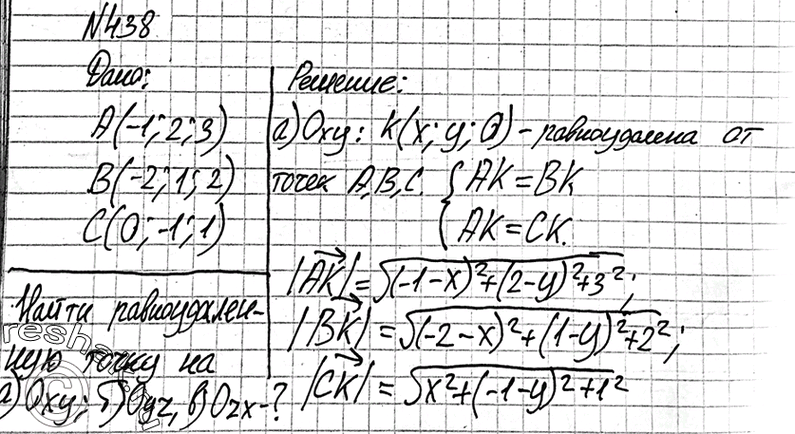 N438
Дано:
A(-1; 2; 3)
B(-2; 1; 2)
C(0; -1; 1)
Найти равноудален-
ную точку на
а) Oxy; б) Oyz, в) Ozx-?
Решение:
а) Oxy: K(x; y; 0) - равноудалена от
точек A,B,C. { AK = BK
{ AK = CK.
|AK| = √(-1-x)²+(2-y)²+3²;
|BK| = √(-2-x)²+(1-y)²+2²;
|CK| = √x²+(-1-y)²+1²